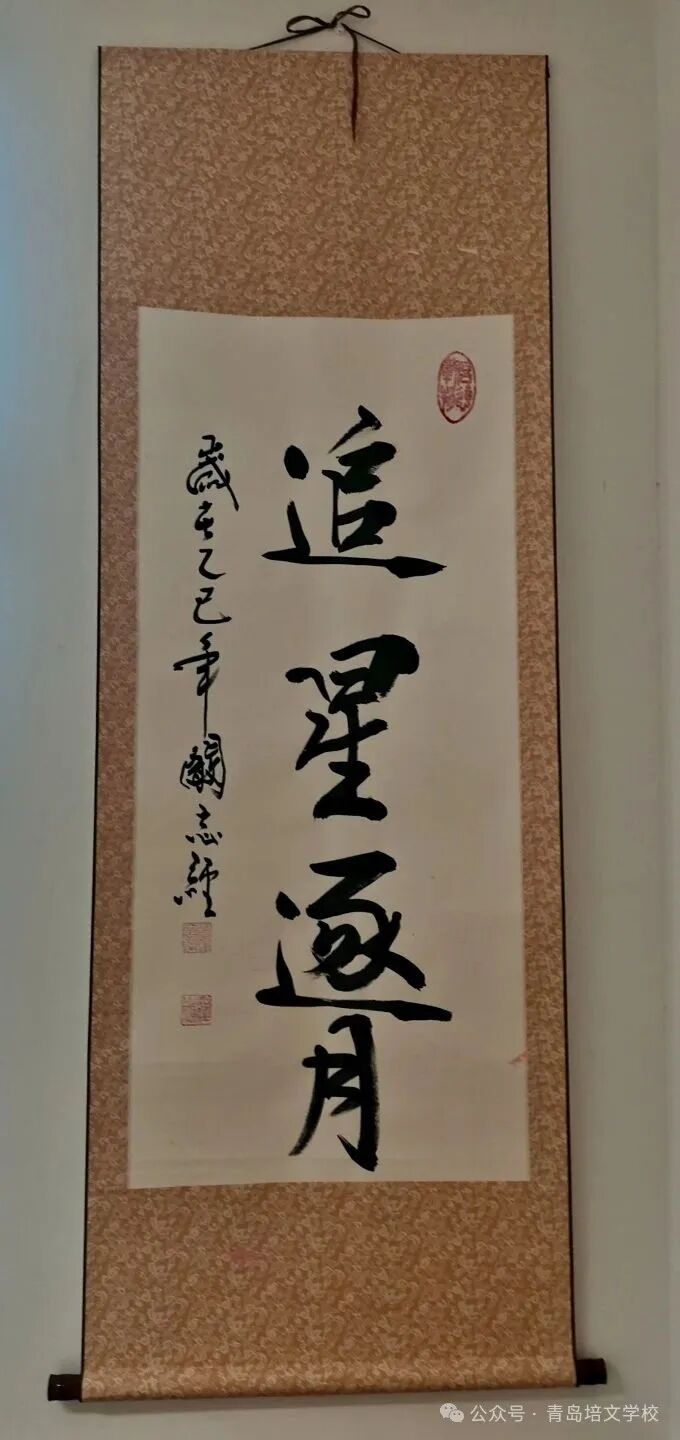 追星逐月
歲在乙巳年關志經
公众号 · 青岛培文学校